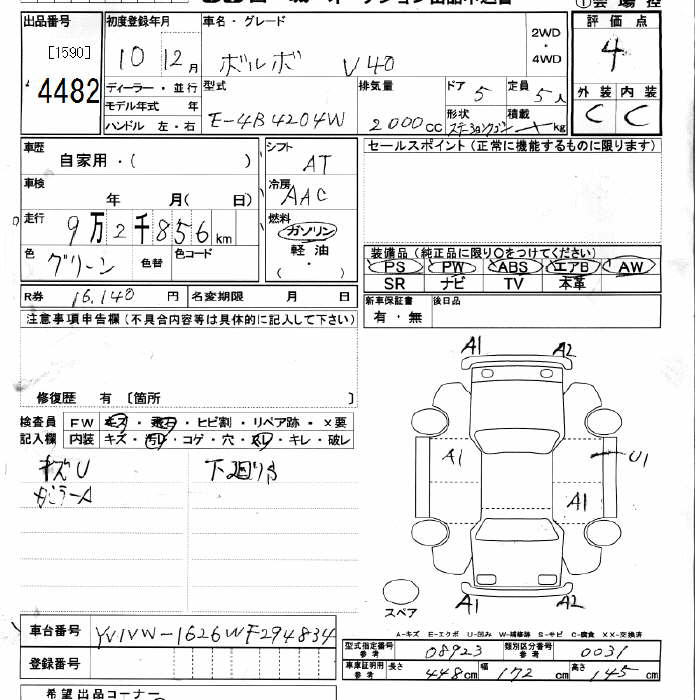 出品番号
[1590]
4482
初度登録年月
10 12月
車名・グレード
ボルボ V40
2WD・4WD
評価点
4
外装 内装
C C
ディーラー・並行
モデル年式 年
ハンドル 左・右
型式
E-4B4204W
排気量
2000cc
ドア
5
定員
5人
形状
ステーションワゴン
積載
kg
車歴
自家用・( )
車検
年 月( 日)
走行
9万2千856km
色
グリーン
色替
色コード
シフト
AT
冷房
AAC
燃料
ガソリン
軽油
( ・ )
セールスポイント(正常に機能するものに限ります)
装備品(純正品に限り○をつけてください)
PS PW ABS エアB AW
SR ナビ TV 本革
新車保証書
有・無
後日品
R券 16,140円 名変期限 月 日
注意事項申告欄(不具合内容等は具体的に記入して下さい)
修復歴 有 〔箇所 〕
検査員記入欄
FW キズ・飛石・ヒビ割・リペア跡・×要
内装 キズ・汚れ・コゲ・穴・スレ・キレ・破レ
キズU
下廻りS
A1 A2
A1 U1
A1
A1 A2
スペア
A-キズ E-エクボ U-凹み W-補修跡 S-サビ C-腐食 XX-交換済
車台番号 YV1VW-1626WF294834
登録番号
型式指定番号 参考 08923 類別区分番号 参考 0031
車庫証明用 参考 長さ 448cm 幅 172cm 高さ 145cm
希望出品コーナー